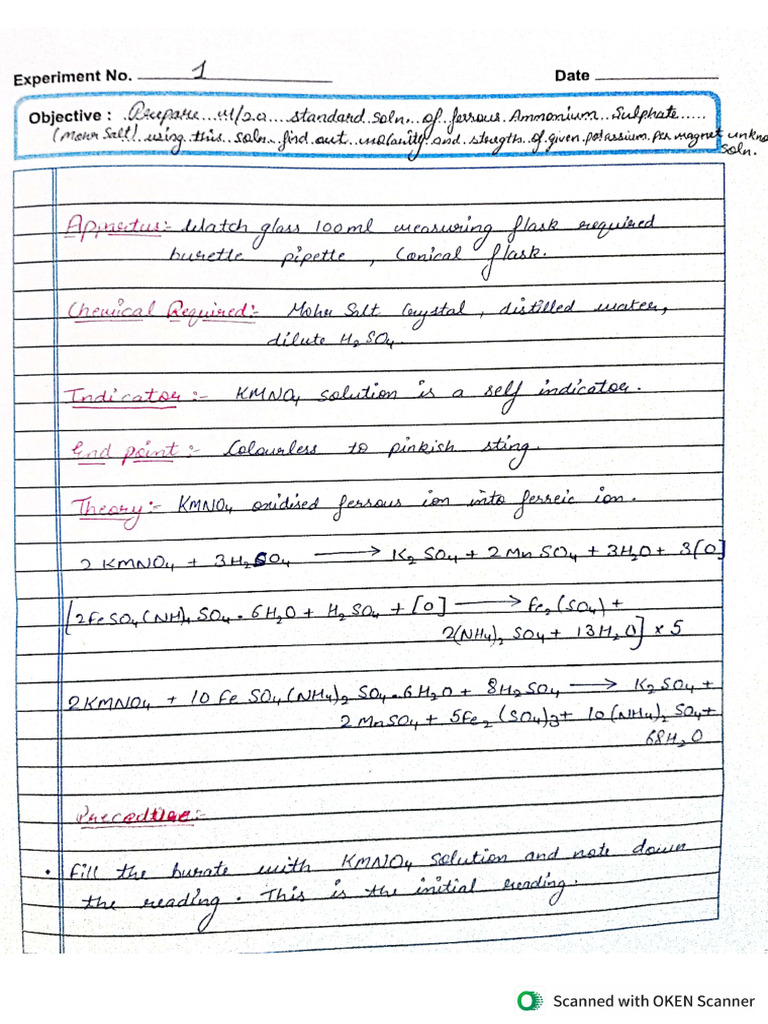 Experiment No. 1 Date
Objective : Prepare M/20 standard soln. of ferrous Ammonium Sulphate
(Mohr Salt) using this soln. find out molarity and strength of given potassium per magnet unkno
soln.
Apparetus:- Watch glass 100ml measuring flask required
burette pipette , Conical flask.
Chemical Required:- Mohr Salt Crystal , distilled water,
dilute H₂SO₄
Indicator :- KMNO₄ solution is a self indicator.
End point :- Colourless to pinkish sting.
Theory:- KMNO₄ oxidised ferrous ion into ferreic ion.
2 KMNO₄ + 3H₂SO₄ ⟶ K₂SO₄ + 2MnSO₄ + 3H₂O + 3[O]
[2FeSO₄(NH)₄SO₄·6H₂O + H₂SO₄ + [O] ⟶ Fe₂(SO₄) +
2(NH₄)₂SO₄ + 13H₂O] × 5
2KMNO₄ + 10FeSO₄(NH₄)₂SO₄·6H₂O + 8H₂SO₄ ⟶ K₂SO₄ +
2MnSO₄ + 5Fe₂(SO₄)3 + 10(NH₄)₂SO₄+
68H₂O
:-
• Fill the burate with KMNO₄ solution and note down
the reading. This is the initial reading.
Scanned with OKEN Scanner